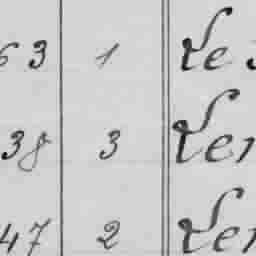 63 1 Le
38 3 Ler
47 2 Ler